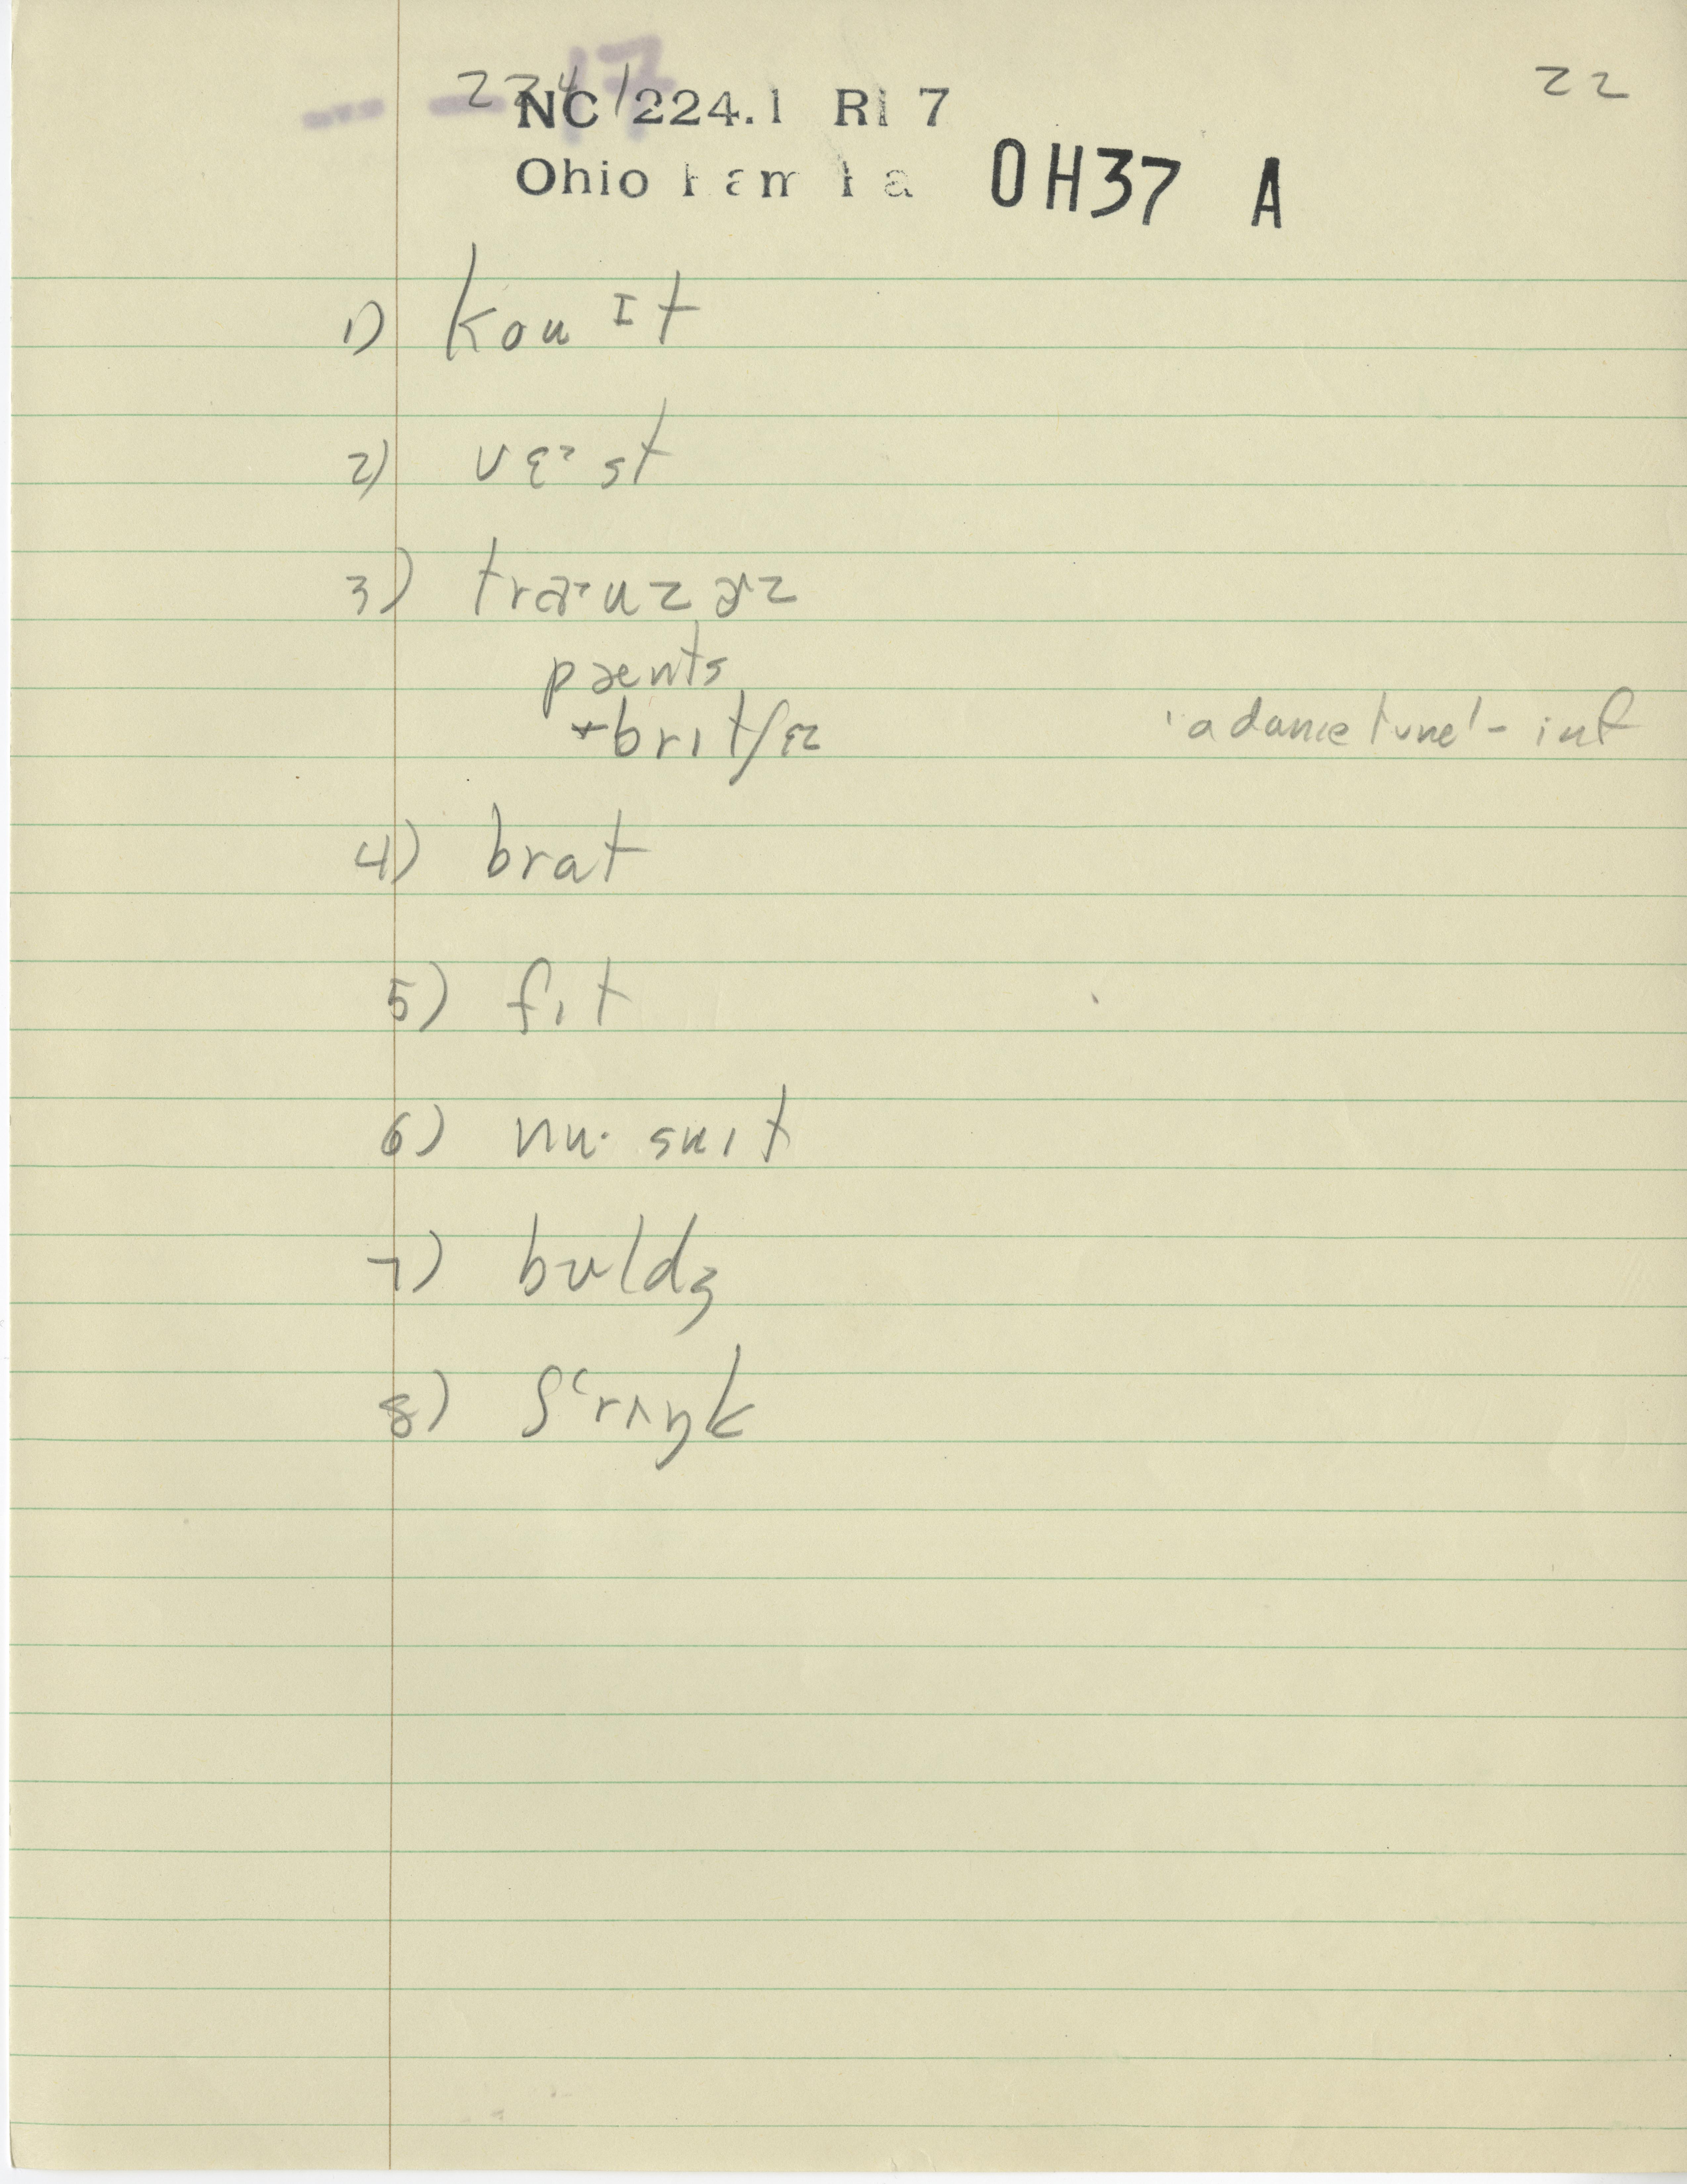 22
NC 224.1 R1 7
Ohio OH37 A
1) kouɪt
2) vɛᵊst
3) traᵊuzɚz
pænts
+britʃɪz 'a dance tune' - inf
4) brat
5) fɪt
6) nu· suɪt
7) bʊldʒ
8) ʃ‘rʌŋk